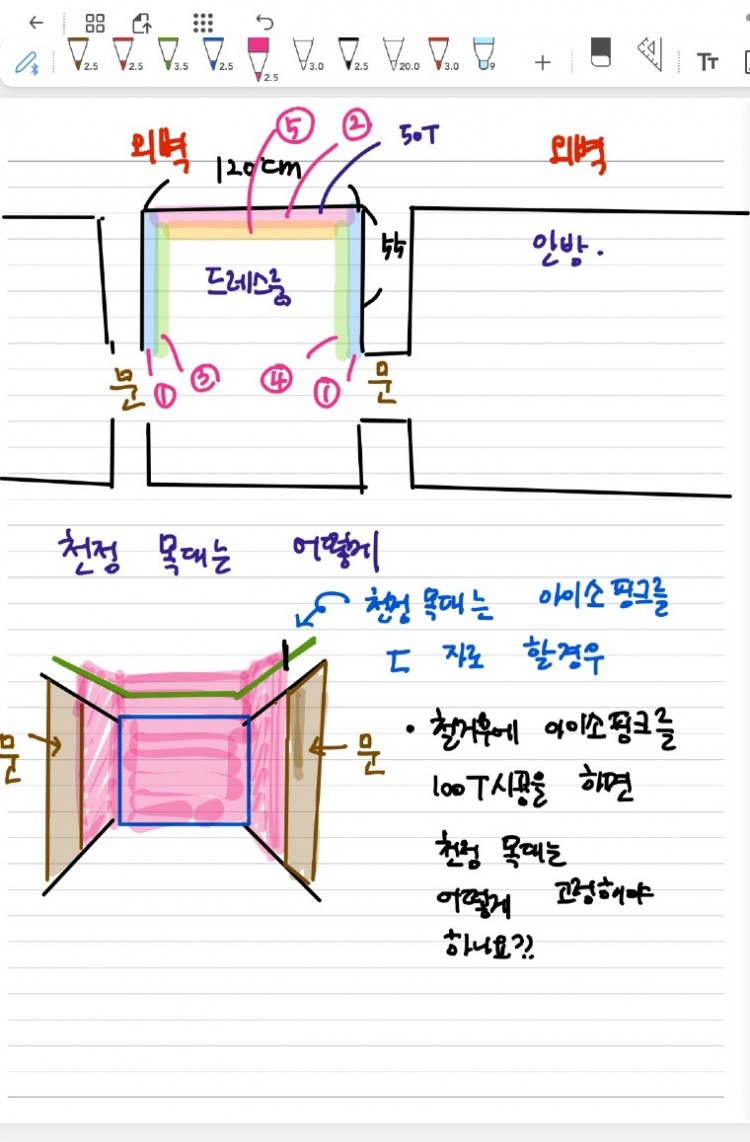 2.5 2.5 3.5 2.5 2.5 3.0 2.5 20.0 3.0 9 TT
외벽 ⑤ ② 50T 외벽
120cm
55
드레스룸 안방.
문 ① ③ ④ ① 문
천정 목대는 어떻게
천정 목대는 아이소핑크를
ㄷ 자로 할경우
문 문
• 철거후에 아이소핑크를
100T시공을 하면
천정 목대는
어떻게 고정해야
하나요??